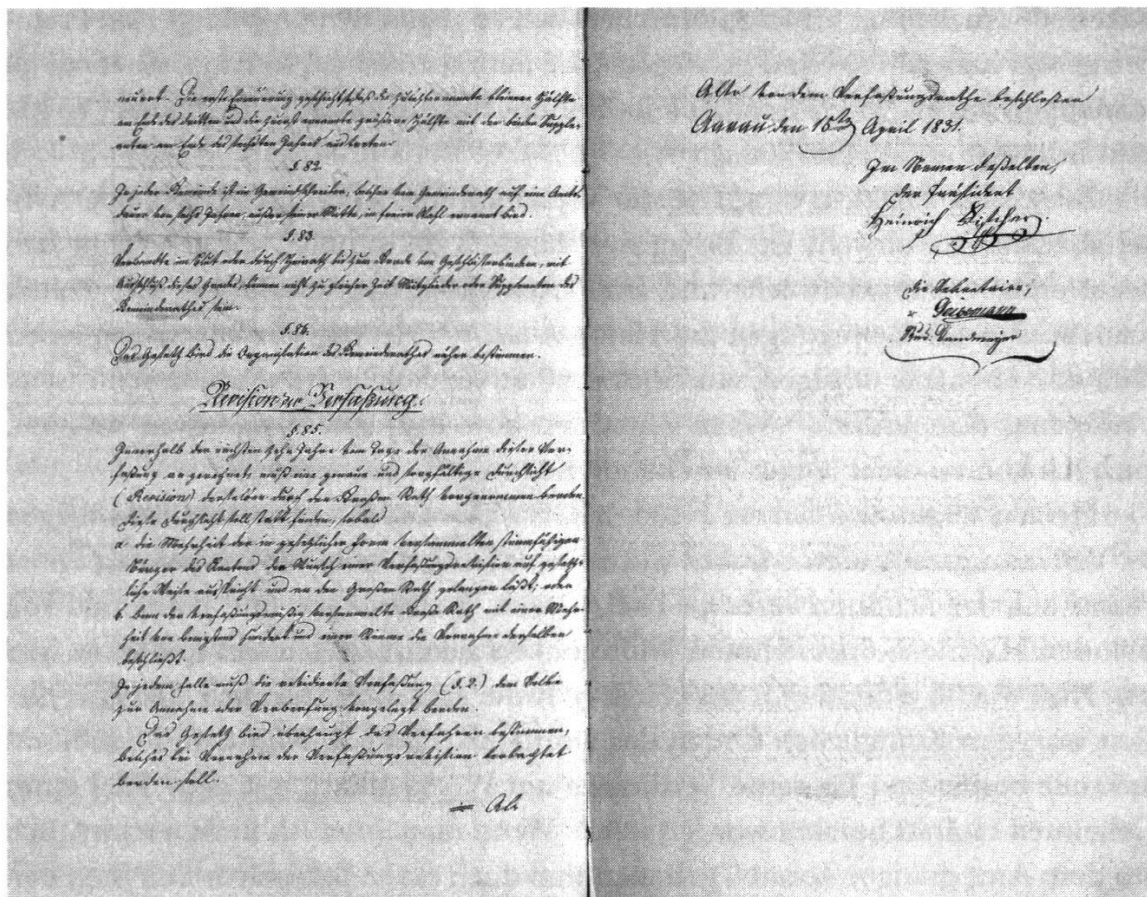 neuert. Die erste Erneuerung geschieht so, daß die zuletzt ernannte kleinere Hälfte
am Ende des dritten und die zuerst ernannte größere Hälfte mit den beiden Supple-
anten am Ende des sechsten Jahres austreten.
§. 82.
In jeder Gemeinde ist ein Gemeindschreiber, welcher vom Gemeindrath auf eine Amts-
dauer von sechs Jahren, außer seiner Mitte, in freier Wahl ernannt wird.
§. 83.
Verwandte im Blut oder durch Heirath bis zum Grade von Geschwisterkindern, mit
Einschluß dieses Grads, können nicht zu gleicher Zeit Mitglieder oder Suppleanten des
Gemeindrathes sein.
§. 84.
Das Gesetz wird die Organisation des Gemeindrathes näher bestimmen.
Revision der Verfaßung.
§. 85.
Innerhalb der nächsten zehn Jahre vom Tage der Annahme dieser Ver-
faßung an gerechnet muß eine genaue und sorgfältige Durchsicht
(Revision) derselben durch den Großen Rath vorgenommen werden.
Diese Durchsicht soll statt finden, sobald
a. die Mehrheit der in gesetzlicher Form versammelten stimmfähigen
Bürger des Kantons den Wunsch einer Verfaßungsrevision auf gesetz-
liche Weise ausspricht und an den Großen Rath gelangen läßt; oder
b. wenn der verfaßungsmäßig versammelte Große Rath mit einer Mehr-
heit von hundert und einer Stimme die Vornahme derselben
beschließt.
In jedem Falle muß die revidierte Verfaßung (§. 2.) dem Volke
zur Annahme oder Verwerfung vorgelegt werden.
Das Gesetz wird überhaupt das Verfahren bestimmen,
welches bei Vornahme der Verfaßungsrevision beobachtet
werden soll.
Als
Also von dem Verfaßungsrathe beschloßen
Aarau den 15ten April 1831.
Im Namen deßelben,
der Präsident
Heinrich Fischer.
die Sekretairs,